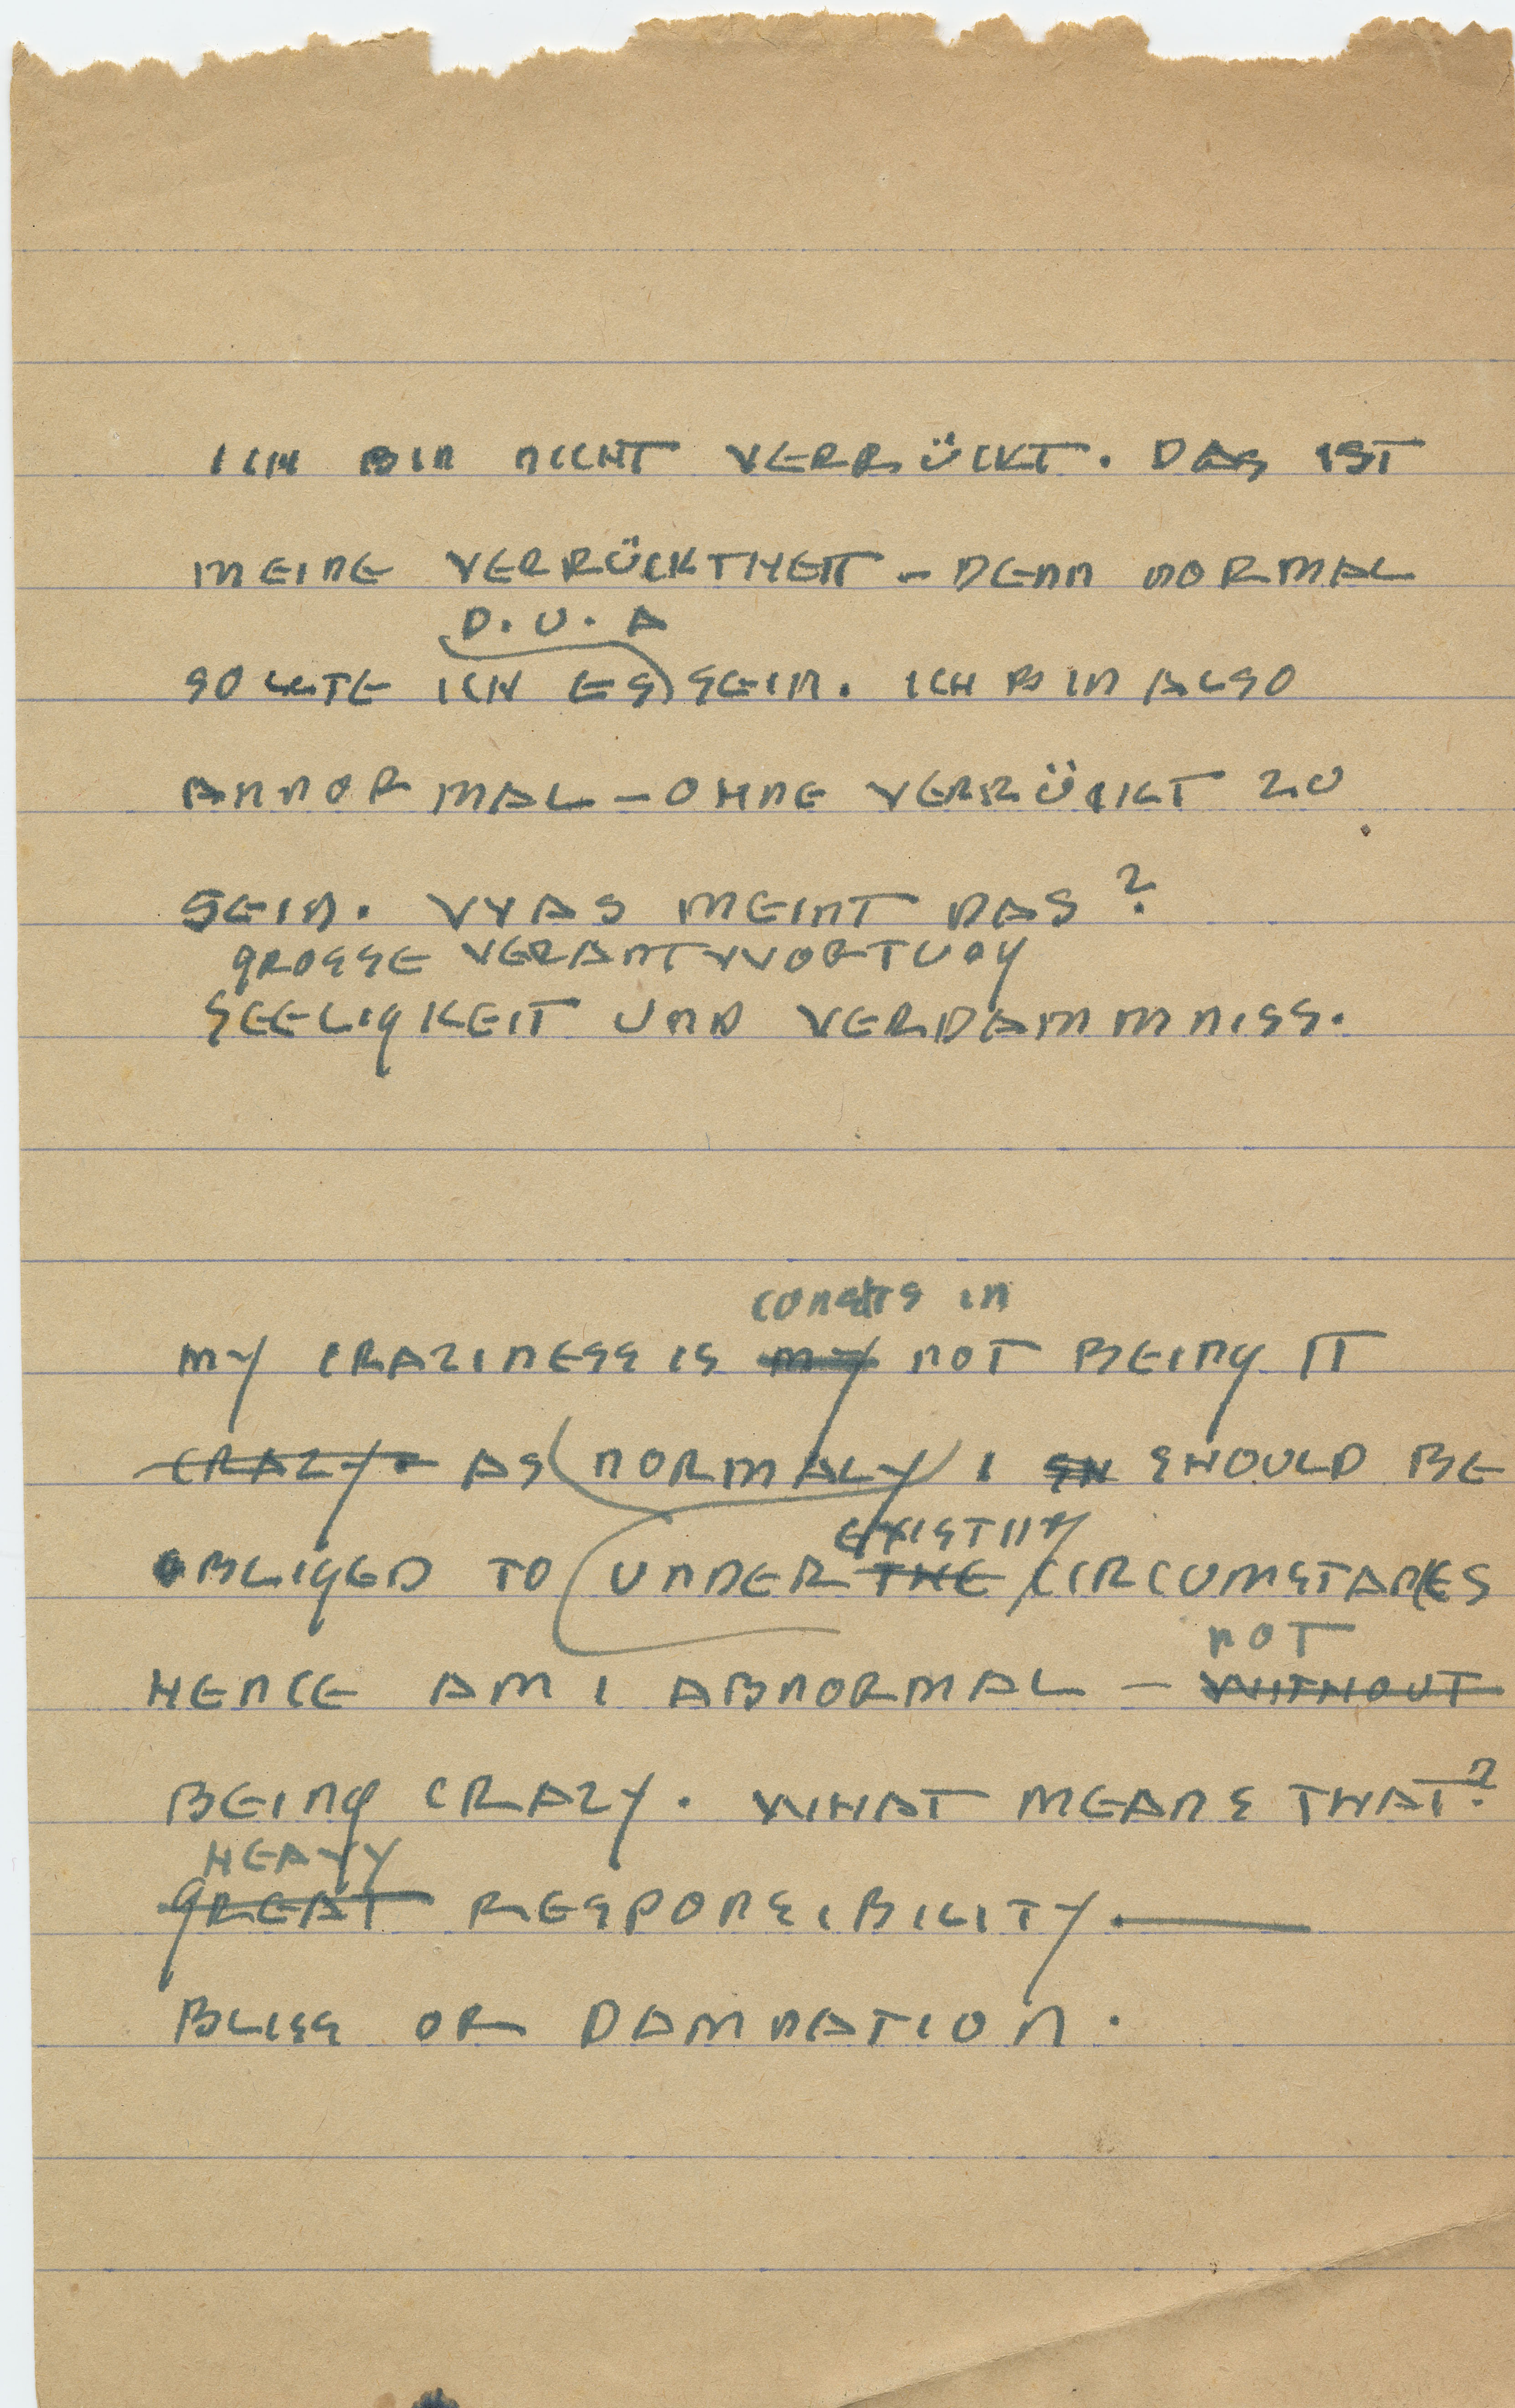 ICH BIN NICHT VERRÜCKT. DAS IST
MEINE VERRÜCKTHEIT - DENN NORMAL
D. U. A
SOLLTE ICH ES SEIN. ICH BIN ALSO
ANNORMAL - OHNE VERRÜCKT ZU
SEIN. WAS MEINT DAS?
GROSSE VERANTWORTUNG
SEELIGKEIT UND VERDAMMNISS.
CONSITS IN
MY CRAZINESS IS MY NOT BEING IT
CRAZY. AS (NORMALY) I SH SHOULD BE
EXISTING
OBLIGED TO UNDER THE CIRCUMSTANCES
NOT
HENCE AM I ABNORMAL — WITHOUT
BEING CRAZY. WHAT MEANS THAT?
HEAVY
GREAT RESPONSIBILITY. —
BLISS OR DAMNATION.